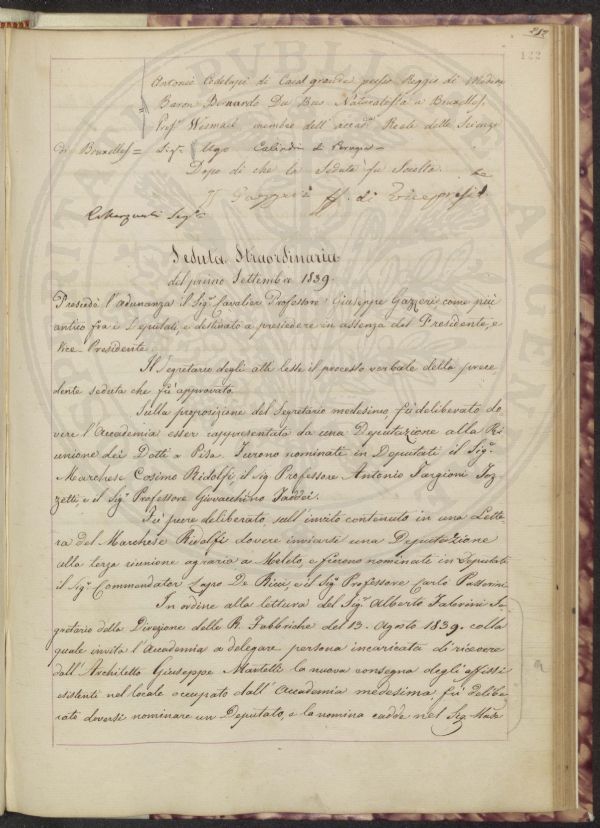 217
122
Antonio Codelupi di Casal grande presso Reggio di Modena
Baron Bernardo Du Bus Naturalista a Bruxelles.
Prof.r Wesmael membro dell' accad.ia Reale delle Scienze
di Bruxelles = Sig.r Ugo Calindri di Perugia =
Dopo di che la Seduta fu Sciolta.
G Gazzeri ff. di Vicepresid.te
Seg.rio
Seduta Straordinaria
del primo Settembre 1839.
Presiede l'adunanza il Sig.r Cavalier Professore Giuseppe Gazzeri come più
antico fra i Deputati, e destinato a presiedere in assenza del Presidente, e
Vice-Presidente.
Il Segretario degli atti lesse il processo verbale della prece
dente seduta che fù approvato.
Sulla proposizione del Segretario medesimo fù deliberato do
vere l'Accademia esser rappresentata da una Deputazione alla Ri
unione dei Dotti a Pisa. Furono nominati in Deputati il Sig.r
Marchese Cosimo Ridolfi, il Sig Professore Antonio Targioni Toz
zetti, e il Sig.r Professore Giovacchino Taddei.
Fù pure deliberato sull'invito contenuto in una Lette
ra del Marchese Ridolfi dovere inviarsi una Deputazione
alla terza riunione agraria a Meleto, e furono nominati in Deputati
il Sig.r Commendator Lapo De Ricci, e il Sig.r Professore Carlo Passerini
In ordine alla lettura del Sig.r Alberto Fabrini Se
gretario della Direzione delle R. Fabbriche del 13. Agosto 1839. colla
quale invita l'Accademia a delegare persona incaricata di ricevere
dall'Architetto Giuseppe Martelli la nuova consegna degli affissi
esistenti nel locale occupato dall'Accademia medesima, fù delibe
rato doversi nominare un Deputato, e la nomina cadde nel Sig.